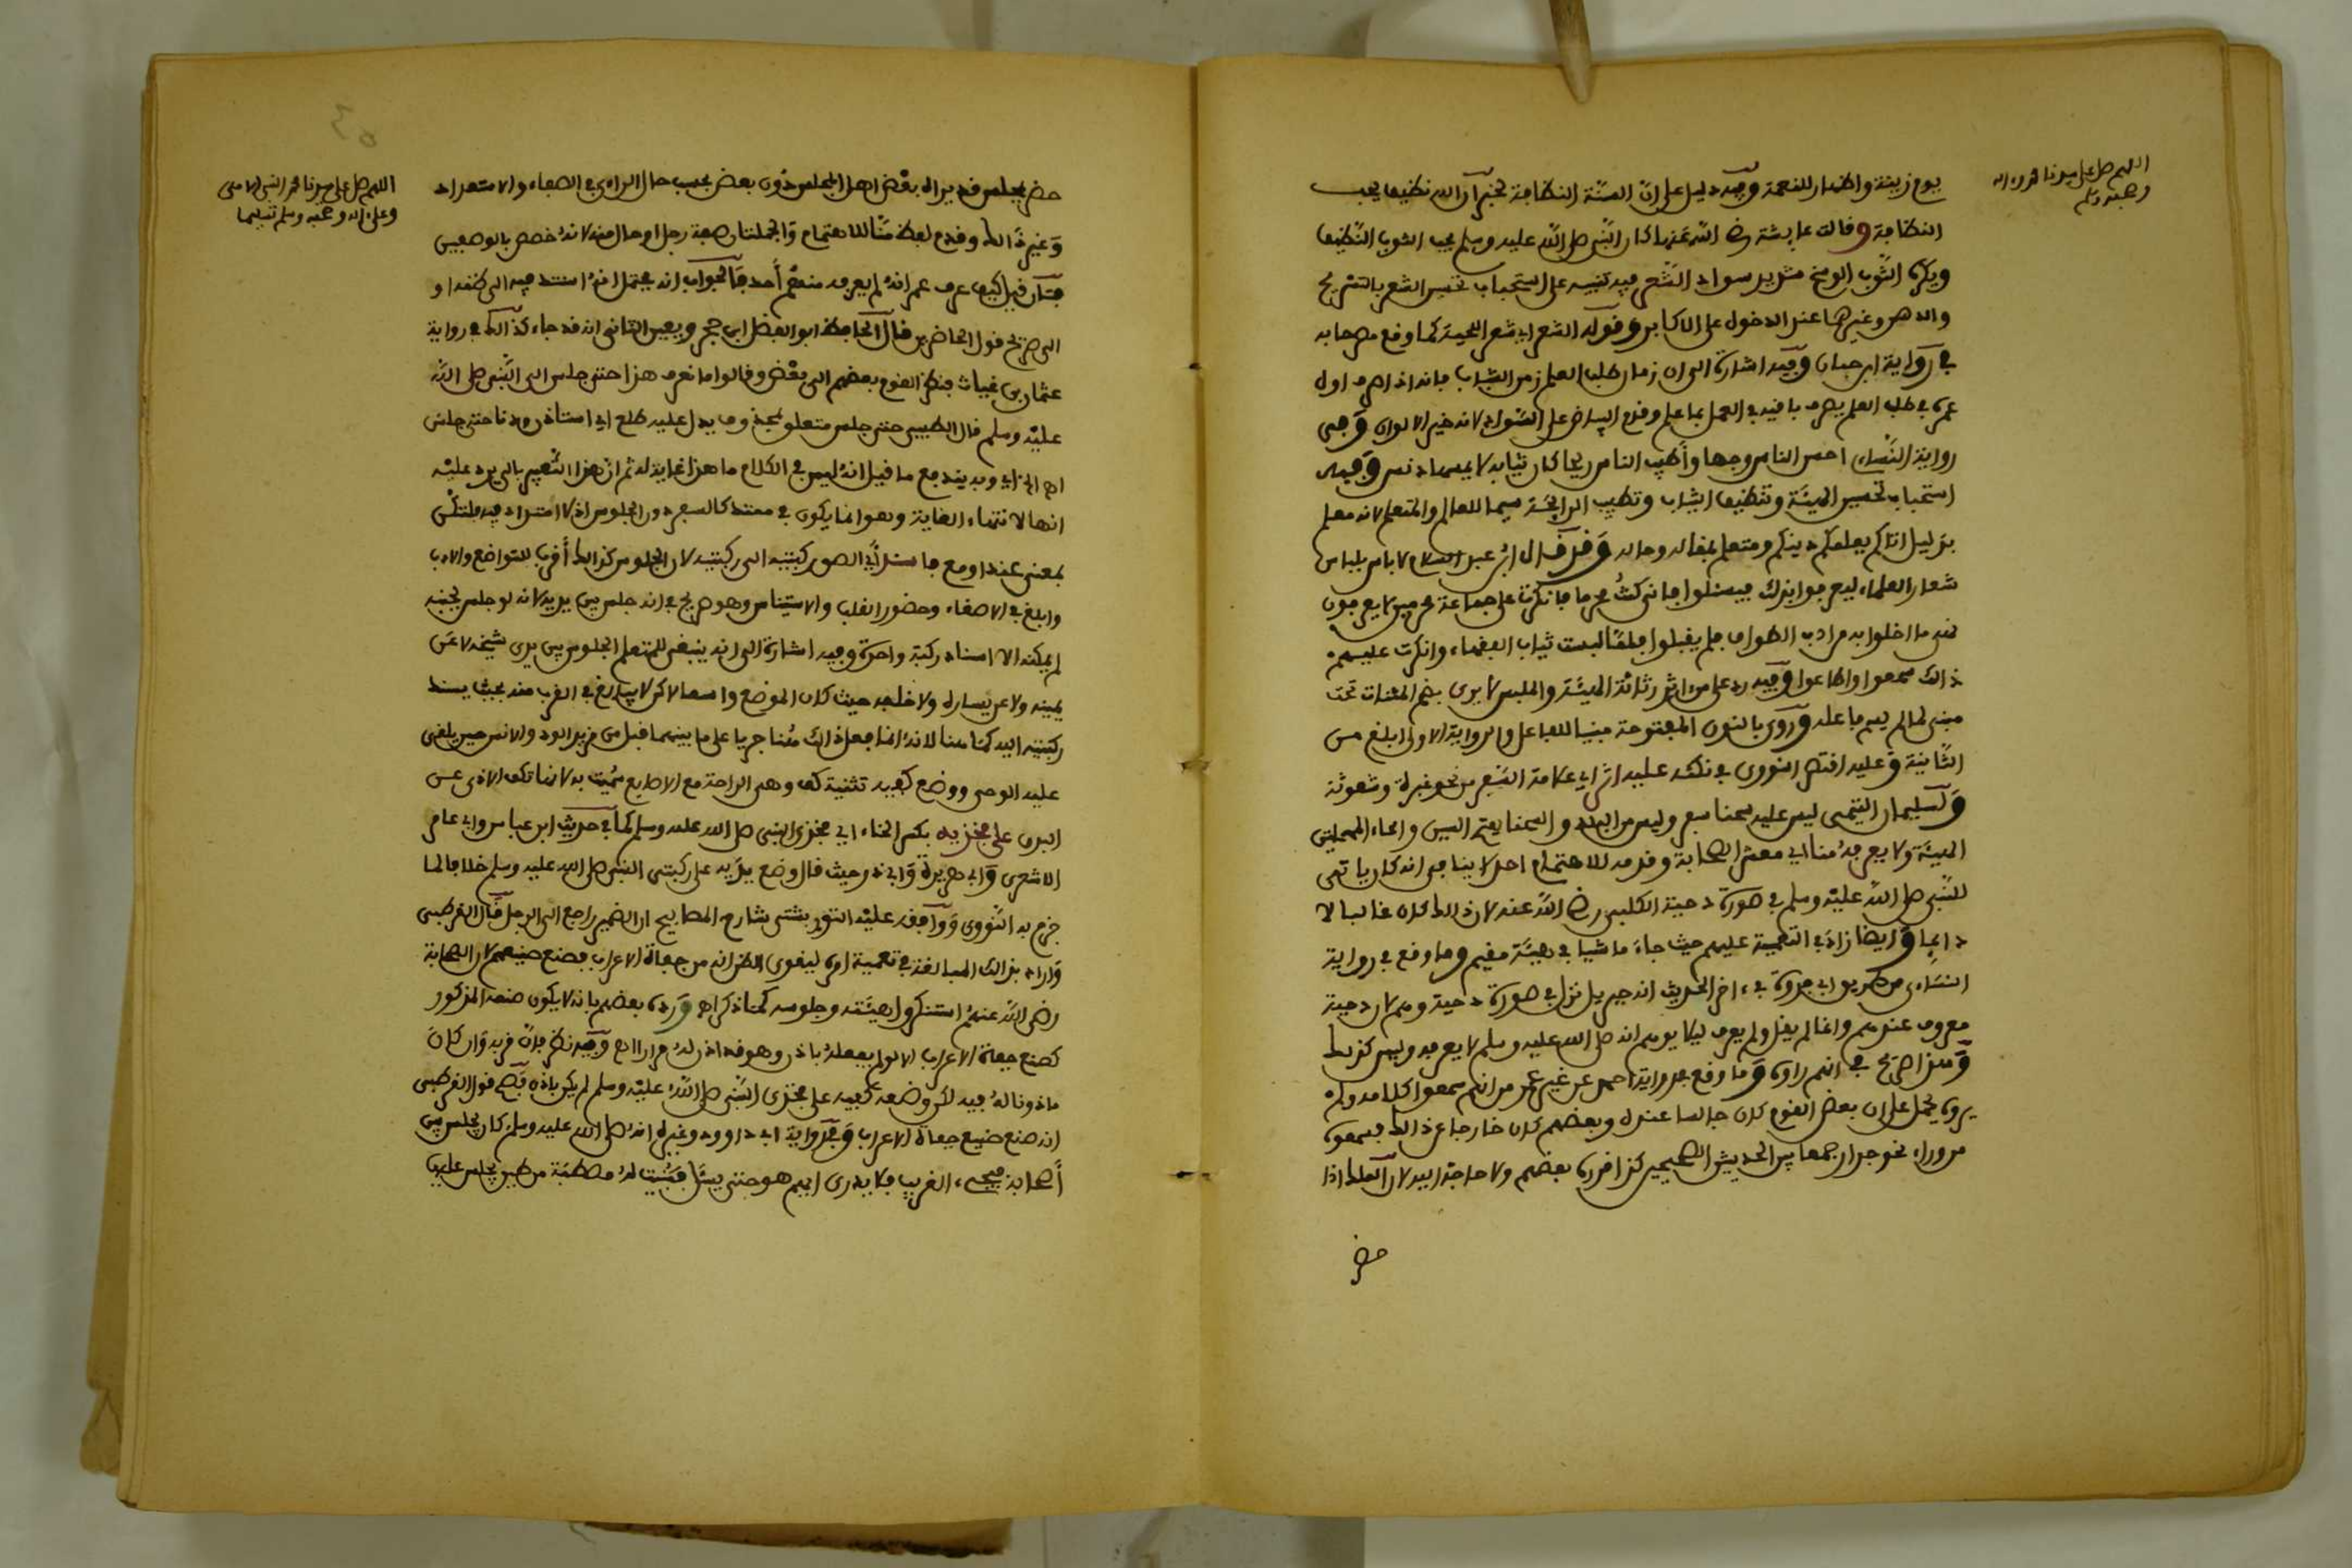 اللهم صل على سيدنا محمد واله
وصحبه وسلم
يوم زينة واظهار للنعمة وفيه دليل على ان السنة النظافة لخبر ان الله نظيف يحب
النظافة وقالت عايشة رضي الله عنها كان النبي صلى الله عليه وسلم يحب الثوب النظيف
ويكره الثوب الوسخ شديد سواد الشعر فيه تنبيه على استحباب تحسين الشعر بالتسريح
والدهن وغيرها عند الدخول على الاكابر وقوله الشعر اي شعر اللحية كما وقع مصرحا به
في رواية ابن حبان وفيه اشارة الى ان زمان طلب العلم زمن الشباب فانه اذا صرف اول
عمره في طلب العلم يصرف باقيه في العمل بما علم وقدم البياض على السواد لانه خير الالوان وفي
رواية النساءي احسن الناس وجها وأطيب الناس ريحا كان ثيابه لا يمسها دنس وفيه
استحباب تحسين الهيئة وتنظيف الثياب وتطييب الرائحة سيما للعالم والمتعلم لانه معلم
بدليل اتاكم يعلمكم دينكم ومتعلم بمقاله وحاله وقد قال ابن عبد السلام لا باس بلباس
شعار العلماء ليعرفوا بذلك فيسئلوا فاني كنت محرما فانكرت على جماعة محرمين لا يعرفون
ما اخلوا به من ادب الطواف فلم يقبلوا فلما لبست ثياب الفقهاء وانكرت عليهم
ذالك سمعوا واطاعوا وفيه رد على من اثر رثاثة الهيئة والملبس لا يرى بضم المثنات تحت
مبني لما لم يسم فاعله وروي بالنون المفتوحة مبنيا للفاعل والرواية الاولى ابلغ من
الثانية وعليه اقتصر النووي في نكته عليه اثر اي علامة السفر من نحو غبرة وشعوثة
ولسليمان التيمي ليس عليه سحنا سفر وليس من البلد والسحنا بفتح السين والحاء المهملتين
الهيئة ولا يعرفه منا اي معشر الصحابة وقدمه للاهتمام احد لا ينافي انه كان ياتي
للنبي صلى الله عليه وسلم في صورة دحية الكلبي رضي الله عنه لان ذالك كان غالبا لا
دايما وايضا زاد في التعمية عليهم حيث جاء ماشيا في هيئة مقيم وما وقع في رواية
النساءي من طريق ابي فروة في اخر الحديث انه جبريل نزل في صورة دحية وهم لان دحية
معروف عندهم وانما لم يقل ولم يعرف ليلا يوهم انه صلى الله عليه وسلم لا يعرفه وليس كذلك
وهذا صريح في انهم راوه وما وقع في رواية احمد عن غير عمر من انهم سمعوا كلامه ولم
يروه يحمل على ان بعض القوم كان جالسا عنده وبعضهم كان خارجا عن ذالك فسمعوه
من وراء نحو جدار جمعا بين الحديثين الصحيحين كذا قرره بعضهم ولا حاجة اليه لان الملك اذا
حضر
اللهم صل على سيدنا محمد النبي الامي
وعلى اله وصحبه وسلم تسليما
حضر بمجلس قد يراه بعض اهل المجلس دون بعض بحسب حال الراءي في الصفاء والاستعداد
وغير ذالك وقدم لفظ منا للاهتمام والجملتان صفة رجل او حال منه لانه خصص بالوصفين
فان قيل كيف عرف عمر انه لم يعرفه منهم أحد فالجواب انه يحتمل انه استند فيه الى ظنه او
الى صريح قول الحاضرين قال الحافظ ابو الفضل ابن حجر ويعين الثاني انه قد جاء كذالك في رواية
عثمان بن غياث فنظر القوم بعضهم الى بعض وقالوا ما نعرف هذا حتى جلس الى النبي صلى الله
عليه وسلم قال الطيبي حتى جلس متعلق بمحذوف يدل عليه طلع اي استاذن ودنا حتى جلس
وبه يندفع ما قيل انه ليس في الكلام ما هذا غاية له ثم ان هذا التعبير بالى يرد عليه
انها لانتهاء الغاية وهو انما يكون في ممتد كالسفر دون الجلوس اذ لا امتداد فيه فلتكن
بمعنى عند او مع فاسند اي الصق ركبتيه الى ركبتيه لان الجلوس كذالك أقرب للتواضع والادب
وابلغ في الاصغاء وحضور القلب والاستيناس وهو صريح في انه جلس بين يديه لانه لو جلس بجنبه
لم يمكنه الا اسناد ركبة واحدة وفيه اشارة الى انه ينبغي للمتعلم الجلوس بين يدي شيخه لا عن
يمينه ولا عن يساره ولا خلفه حيث كان الموضع واسعا لاكن لا يبالغ في القرب منه بحيث يسند
ركبتيه اليه كما هنا لانه انما فعل ذالك هنا جريا على ما بينهما قبل من مزيد الود والانس حين يلقي
عليه الوحي ووضع كفيه تثنية كف وهي الراحة مع الاصابع سميت به لانها تكف الاذى عن
البدن على فخذيه بكسر الخاء اي فخذي النبي صلى الله عليه وسلم كما في حديث ابن عباس وابي عامر
الاشعري وابي هريرة وابي ذر حيث قال وضع يديه على ركبتي النبي صلى الله عليه وسلم خلافا لما
جزم به النووي ووافقه عليه التوربشتي شارح المصابيح ان الضمير راجع الى الرجل قال القرطبي
واراد بذالك المبالغة في تعمية امره ليقوى الظن انه من جفاة الاعراب فصنع صنيعهم لان الصحابة
رضي الله عنهم استنكروا هيئته وجلوسه كما ذكر اه ورده بعضهم بانه لا يكون صنعه المذكور
كصنع جفاة الاعراب الا لو لم يفعله باذن وهو قد اذن له مرارا اه وفيه نظر فان قربه وان كان
ماذونا له فيه لكن وضعه كفيه على فخذي النبي صلى الله عليه وسلم لم يكن باذنه فصح قول القرطبي
انه صنع صنيع جفاة الاعراب وفي رواية ابي داوود وغيره انه صلى الله عليه وسلم كان يجلس بين
أصحابه فيجيء الغريب فلا يدري ايهم هو حتى يسأل فبنيت له مصطبة من طين يجلس عليها